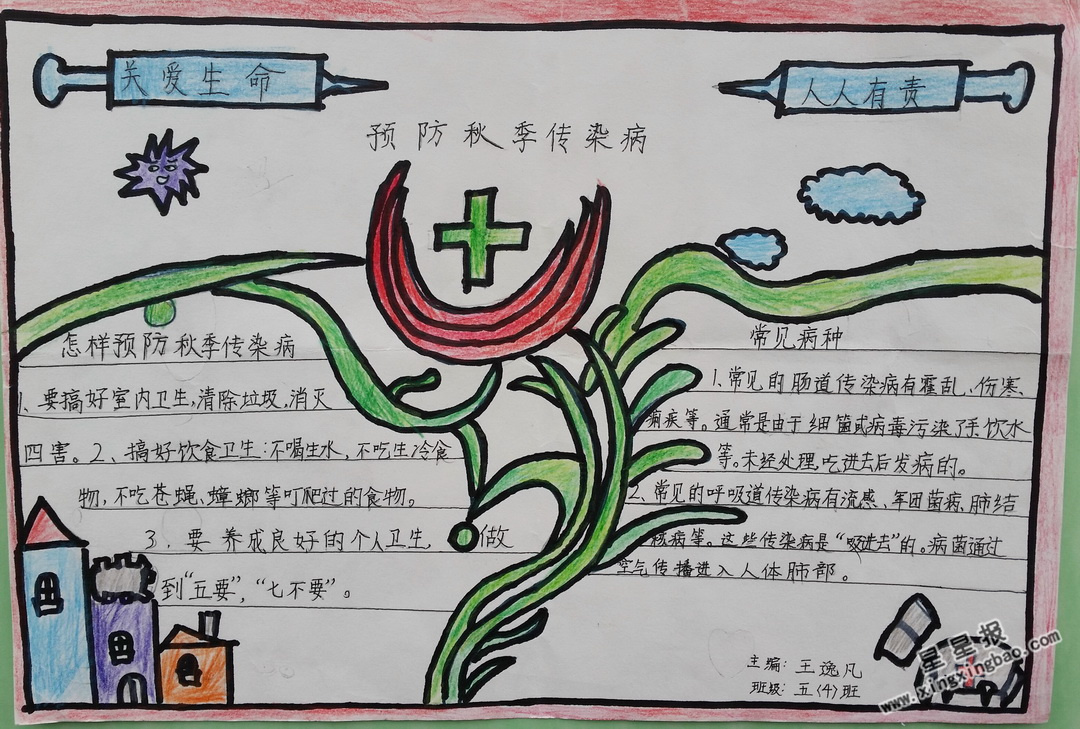 关爱生命
人人有责
预防秋季传染病
怎样预防秋季传染病
1、要搞好室内卫生,清除垃圾,消灭
四害。2、搞好饮食卫生:不喝生水,不吃生冷食
物,不吃苍蝇,蟑螂等叮爬过的食物。
3、要养成良好的个人卫生,做
到“五要”,“七不要”。
常见病种
1、常见的肠道传染病有霍乱、伤寒、
痢疾等。通常是由于细菌或病毒污染了手饮水
等。未经处理,吃进去后发病的。
2、常见的呼吸道传染病有流感、军团菌病、肺结
核病等。这些传染病是“吸进去”的。病菌通过
空气传播进入人体肺部。
主编:王逸凡
班级:五〈4〉班
星星报
www.xingxingbao.com